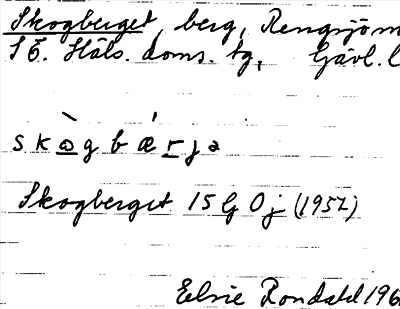 Skogberget, berg, Rengsjö
S Ö. Häls. doms. tg, Gävl. l
s k ò g b ǽ r j a
Skogberget 15 G 0 j (1952)
Elsie Rondahl 196